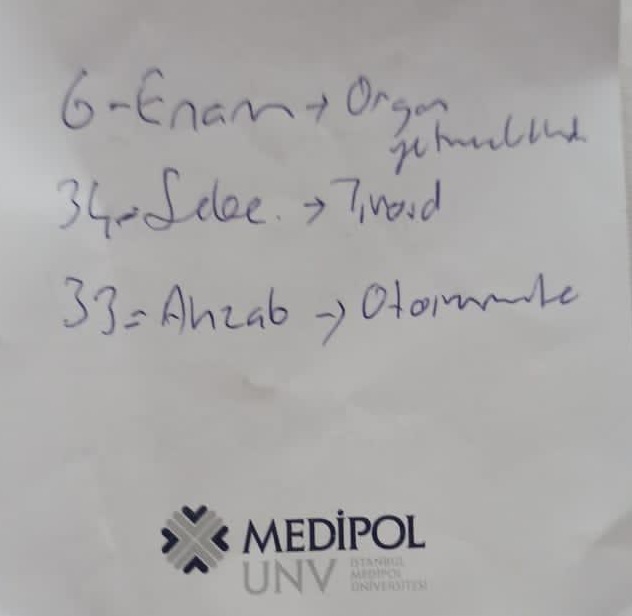 6-Enam → Organ
34-Sebe. → Tiroid
33= Ahzab → Otoimmute
MEDİPOL
UNV
İSTANBUL
MEDİPOL
ÜNİVERSİTESİ